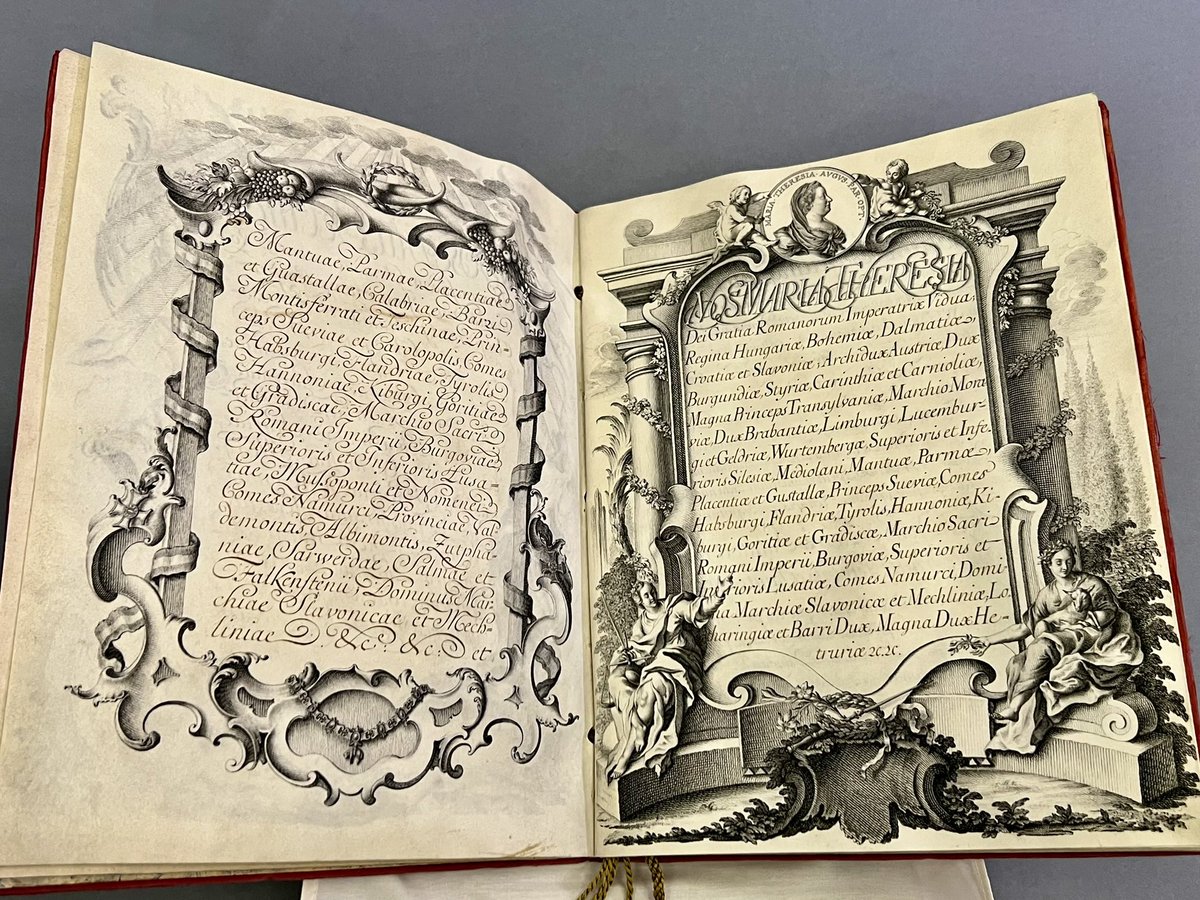 Mantuae, Parmae, Placentiae
et Guastallae, Calabriae, Barri
Montisferrati et Teschinae, Prin-
ceps Sueviae et Carolopolis, Comes
Habsburgi, Flandriae, Tyrolis
Hannoniae, Kiburgi, Goritiae
et Gradiscae, Marchio Sacri
Romani Imperii, Burgoviae
Superioris et Inferioris Lusa-
tiae, Mussoponti et Nomenei
Comes Namurci, Provinciae, Val-
demontis, Albimontis, Zütpha-
niae, Sarwerdae, Salmae et
Falkenstenii, Dominus Mar-
chiae Slavonicae et Mech-
liniae D. &c. &c. D et
MARIA · THERESIA · AUGUS · PAR · OPT ·
NOS MARIA THERESIA
Dei Gratia Romanorum Imperatrix Vidua,
Regina Hungariæ, Bohemiæ, Dalmatiæ,
Croatiæ et Slavoniæ, Archidux Austriæ, Dux
Burgundiæ, Styriæ, Carinthiæ et Carnioliæ,
Magna Princeps Transylvaniæ, Marchio Mora
viæ, Dux Brabantiæ, Limburgi, Lucembur-
gi et Geldriæ, Wurtembergæ, Superioris et Infe
rioris Silesiæ, Mediolani, Mantuæ, Parmæ,
Placentiæ et Gustallæ, Princeps Sueviæ, Comes
Habsburgi, Flandriæ, Tyrolis, Hannoniæ, Ki-
burgi, Goritiæ et Gradiscæ, Marchio Sacri
Romani Imperii, Burgoviæ, Superioris et
Inferioris Lusatiæ, Comes Namurci, Domi-
na Marchiæ Slavonicæ et Mechliniæ, Lo-
tharingiæ et Barri Dux, Magna Dux He-
truriæ 2c. 2c.